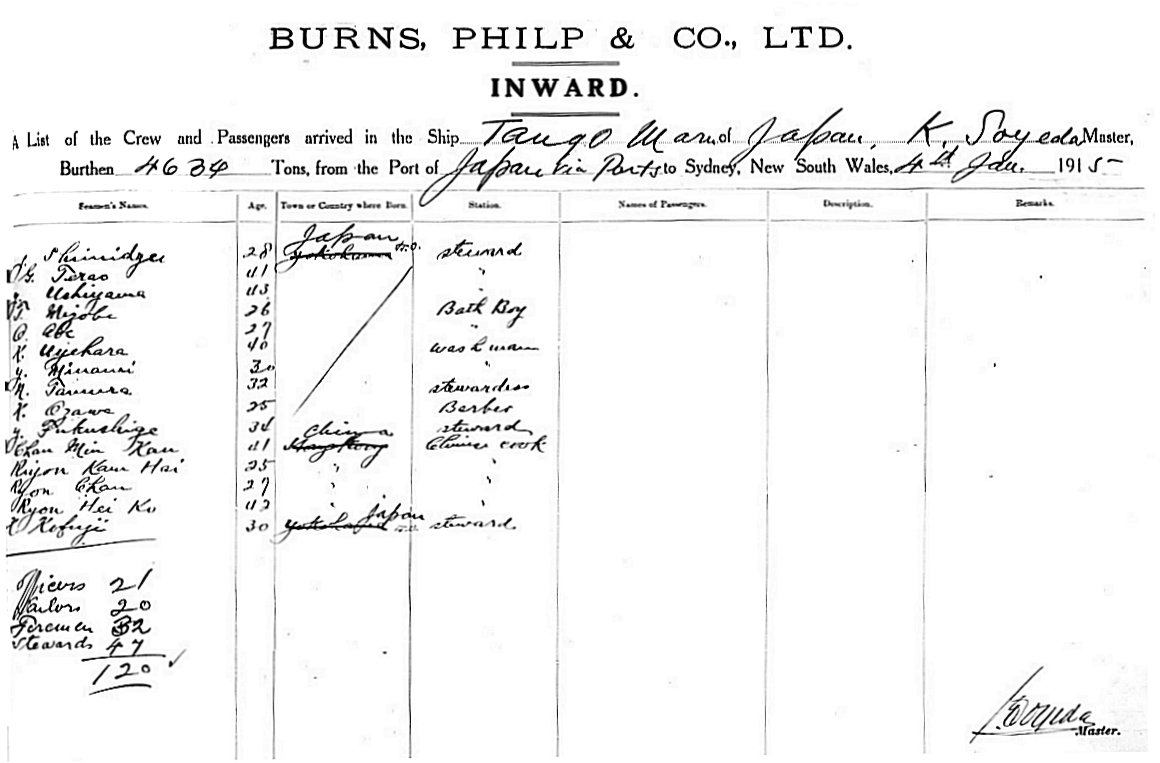 BURNS, PHILP & CO., LTD.
INWARD.
A List of the Crew and Passengers arrived in the Ship Tango Maru of Japan, K. Soyeda Master,
Burthen 4634 Tons, from the Port of Japan via Ports to Sydney, New South Wales, 4th Jan. 1915
Seamen's Names. Age. Town or Country where Born. Station. Names of Passengers. Description. Remarks.
Japan
Shimidzu 28 Yokohama steward
G. Terao 41 "
Ushiyama 43 "
T. Mizobe 26 Bath Boy
O. Abe 27 "
K. Uyehara 40 washman
Y. Minami 30 "
N. Tamura 32 stewardess
K. Ozawa 25 Barber
Y. Fukushige 34 China steward
Chan Min Kan 41 Hong Kong Chinese cook
Kam Hai 25 " "
Ryon Chan 27 " "
Ryon Hei Ko 42 " "
Japan
K Kofuji 30 steward
Officers 21
Sailors 20
Firemen 32
Stewards 47
120
K. Soyeda
Master.